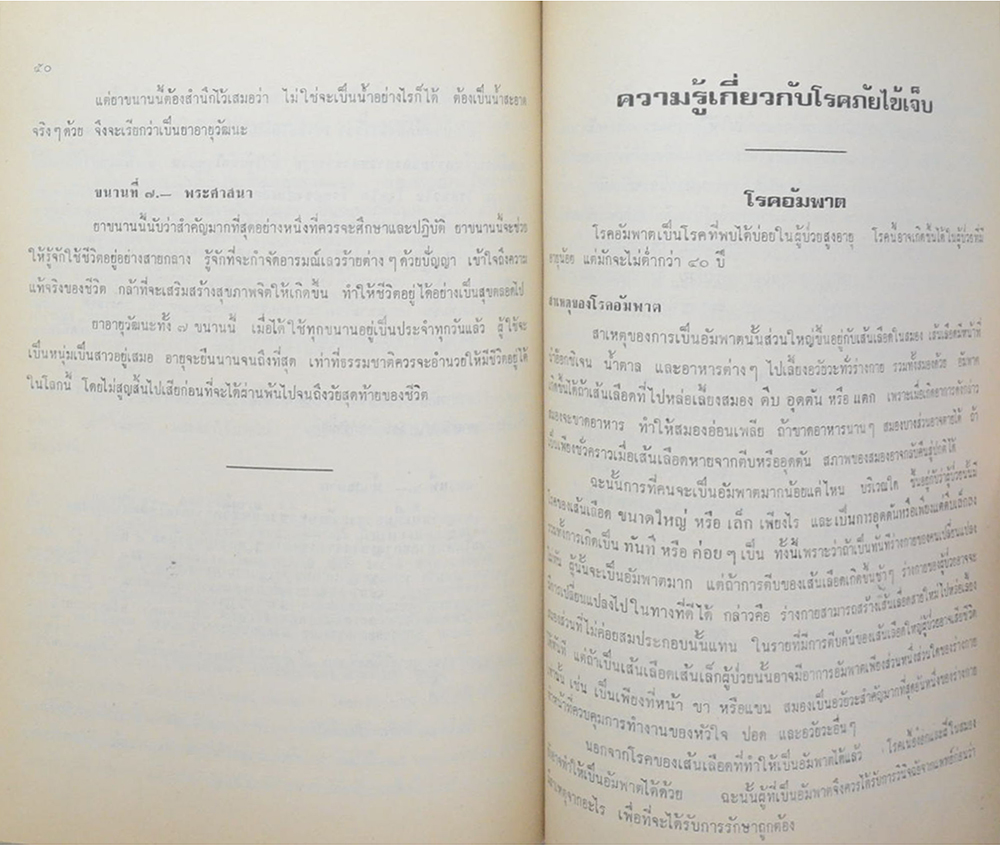 ๕๐
แต่ยาขนานนี้ต้องสำนึกไว้เสมอว่า ไม่ใช่จะเป็นน้ำอย่างไรก็ได้ ต้องเป็นน้ำสะอาด
จริงๆด้วย จึงจะเรียกว่าเป็นยาอายุวัฒนะ
ขนานที่ ๗.— พระศาสนา
ยาขนานนี้นับว่าสำคัญมากที่สุดอย่างหนึ่งที่ควรจะศึกษาและปฏิบัติ ยาขนานนี้จะช่วย
ให้รู้จักใช้ชีวิตอยู่อย่างสายกลาง รู้จักที่จะกำจัดอารมณ์เลวร้ายต่างๆด้วยปัญญา เข้าใจถึงความ
แท้จริงของชีวิต กล้าที่จะเสริมสร้างสุขภาพจิตให้เกิดขึ้น ทำให้ชีวิตอยู่ได้อย่างเป็นสุขตลอดไป
ยาอายุวัฒนะทั้ง ๗ ขนานนี้ เมื่อได้ใช้ทุกขนานอยู่เป็นประจำทุกวันแล้ว ผู้ใช้จะ
เป็นหนุ่มเป็นสาวอยู่เสมอ อายุจะยืนนานจนถึงที่สุด เท่าที่ธรรมชาติควรจะอำนวยให้มีชีวิตอยู่ได้
ในโลกนี้ โดยไม่สูญสิ้นไปเสียก่อนที่จะได้ผ่านพ้นไปจนถึงวัยสุดท้ายของชีวิต
ความรู้เกี่ยวกับโรคภัยไข้เจ็บ
โรคอัมพาต
โรคอัมพาตเป็นโรคที่พบได้บ่อยในผู้ป่วยสูงอายุ โรคนี้อาจเกิดขึ้นได้ในผู้ป่วยที่มี
อายุน้อย แต่มักจะไม่ต่ำกว่า ๔๐ ปี
สาเหตุของโรคอัมพาต
สาเหตุของการเป็นอัมพาตนั้นส่วนใหญ่ขึ้นอยู่กับเส้นเลือดในสมอง เส้นเลือดมีหน้าที่
นำออกซิเจน น้ำตาล และอาหารต่างๆ ไปเลี้ยงอวัยวะทั่วร่างกาย รวมทั้งสมองด้วย อัมพาต
เกิดขึ้นได้ถ้าเส้นเลือดที่ไปหล่อเลี้ยงสมอง ตีบ อุดตัน หรือ แตก เพราะเมื่อเกิดอาการดังกล่าว
สมองจะขาดอาหาร ทำให้สมองอ่อนเพลีย ถ้าขาดอาหารนานๆ สมองบางส่วนอาจตายได้ ถ้า
เป็นเพียงชั่วคราวเมื่อเส้นเลือดหายจากตีบหรืออุดตัน สภาพของสมองอาจกลับคืนรูปปกติได้
ฉะนั้นการที่คนจะเป็นอัมพาตมากน้อยแค่ไหน บริเวณใด ขึ้นอยู่กับว่าผู้ป่วยนั้นมี
โรคของเส้นเลือด ขนาดใหญ่ หรือ เล็ก เพียงไร และเป็นการอุดตันหรือเพียงแต่ตีบเล็กลง
รวมทั้งการเกิดเป็น ทันที หรือ ค่อยๆ เป็น ทั้งนี้เพราะว่าถ้าเป็นทันทีร่างกายของคนเปลี่ยนแปลง
ไม่ทัน ผู้นั้นจะเป็นอัมพาตมาก แต่ถ้าการตีบของเส้นเลือดเกิดขึ้นช้าๆ ร่างกายของผู้ป่วยอาจจะ
มีการเปลี่ยนแปลงไปในทางที่ดีได้ กล่าวคือ ร่างกายสามารถสร้างเส้นเลือดสายใหม่ไปหล่อเลี้ยง
สมองส่วนที่ไม่ค่อยสมประกอบนั้นแทน ในรายที่มีการตีบตันของเส้นเลือดใหญ่ผู้ป่วยอาจเสียชีวิต
ได้ทันที แต่ถ้าเป็นเส้นเลือดเส้นเล็กผู้ป่วยนั้นอาจมีอาการอัมพาตเพียงส่วนหนึ่งส่วนใดของร่างกาย
เท่านั้น เช่น เป็นเพียงที่หน้า ขา หรือแขน สมองเป็นอวัยวะสำคัญมากที่สุดอันหนึ่งของร่างกาย
ทำหน้าที่ควบคุมการทำงานของหัวใจ ปอด และอวัยวะอื่นๆ
นอกจากโรคของเส้นเลือดที่ทำให้เป็นอัมพาตได้แล้ว โรคเนื้องอกและฝีในสมอง
ก็อาจทำให้เป็นอัมพาตได้ด้วย ฉะนั้นผู้ที่เป็นอัมพาตจึงควรได้รับการวินิจฉัยจากแพทย์ก่อนว่า
มีสาเหตุจากอะไร เพื่อที่จะได้รับการรักษาถูกต้อง